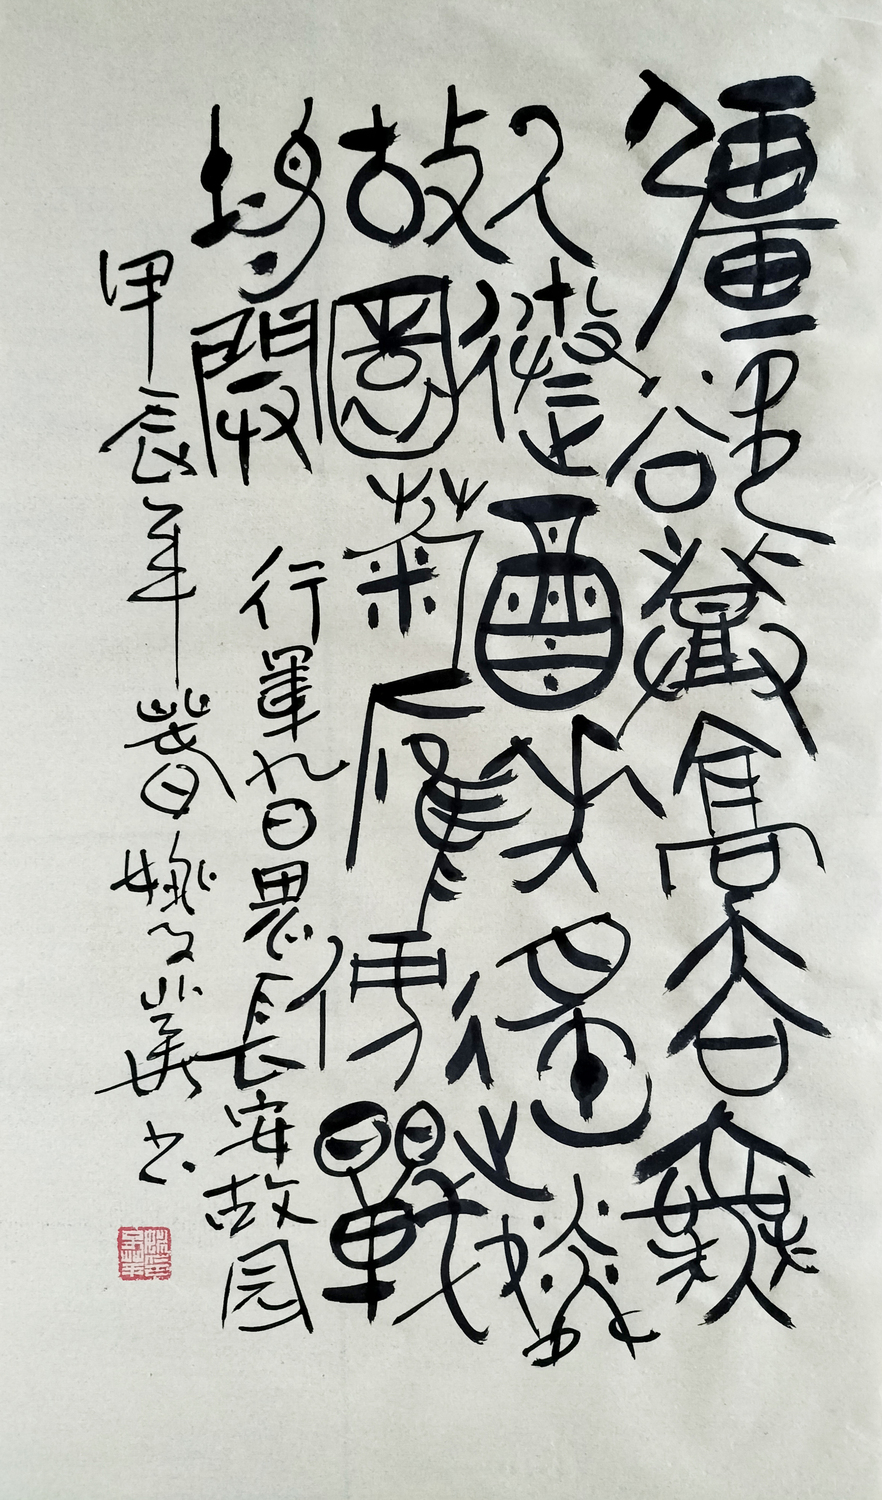 彊欲登高去無
人送酒來遙憐
故園菊應傍戰
場開
行軍九日思長安故园
甲辰年春姚華书